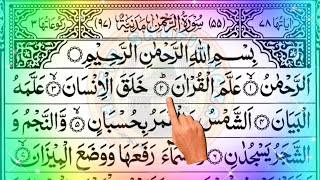 اٰيَاتُهَا ٧٨ (٥٥) سُوْرَةُ الرَّحْمٰنِ مَدَنِيَّةٌ (٩٧) رُكُوْعَاتُهَا ٣
بِسْمِ اللّٰهِ الرَّحْمٰنِ الرَّحِيْمِ
اَلرَّحْمٰنُ ۙ﴿١﴾ عَلَّمَ الْقُرْاٰنَ ؕ﴿٢﴾ خَلَقَ الْاِنْسَانَ ۙ﴿٣﴾ عَلَّمَهُ
الْبَيَانَ ﴿٤﴾ اَلشَّمْسُ وَالْقَمَرُ بِحُسْبَانٍ ۪﴿٥﴾ وَّالنَّجْمُ وَ
الشَّجَرُ يَسْجُدٰنِ ﴿٦﴾ وَالسَّمَآءَ رَفَعَهَا وَوَضَعَ الْمِيْزَانَ ۙ﴿٧﴾